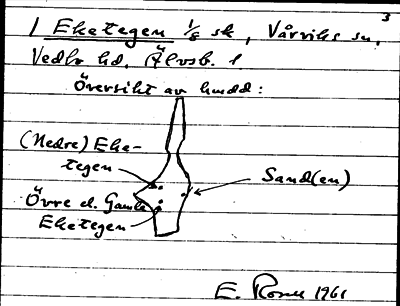 3
1 Eketegen 1/8 sk, Vårviks sn,
Vedbo hd. Älvsb. l
Översikt av hmdd:
(Nedre) Eke-
tegen
Sand(en)
Övre el. Gamla
Eketegen
E. Rosell 1961